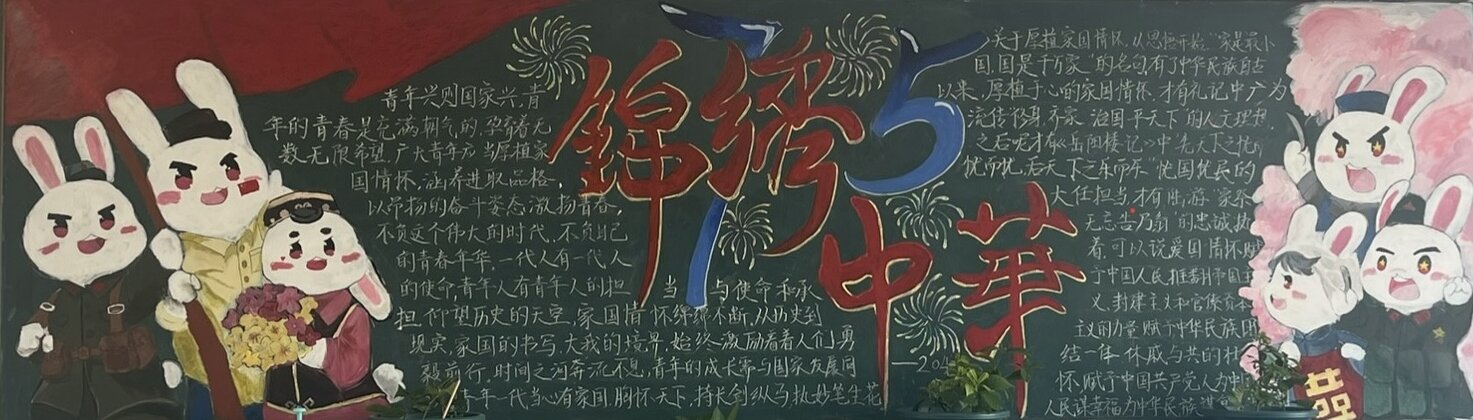 锦绣
75
中華
青年兴则国家兴,青
年的青春是充满朝气的,孕育着无
数无限希望.广大青年应当厚植家
国情怀,涵养进取品格,
以昂扬的奋斗姿态,激扬青春,
不负这个伟大的时代,不负自己
的青春年华,一代人有一代人
的使命,青年人有青年人的担
当 与使命和承
担.仰望历史的天空,家国情怀绵绵不断,从历史到
现实,家国的书写,大我的境界,始终激励着着人们勇
毅前行.时间之河奔流不息,青年的成长需与国家发展同
青年一代当心有家国,胸怀天下,持长剑纵马执妙笔生花
—204
关于厚植家国情怀,从思想开始."家是最小
国,国是千万家"的名句,有了中华民族自古
以来,厚植于心的家国情怀,才有礼记中广为
流传修身 齐家 治国 平天下的人文理想,
之后呢才有《岳阳楼记》中"先天下之忧而
忧而忧,后天下之乐而乐"忧国忧民的
大任担当,才有陆游"家祭
无忘告乃翁"的忠诚执
着.可以说爱国情怀赋
予中国人民推翻帝国主
义,封建主义和官僚资本
主义的力量,赋予中华民族团
结一体 休戚与共的
怀,赋予中国共产党人为中国
人民谋幸福为中华民族谋
共